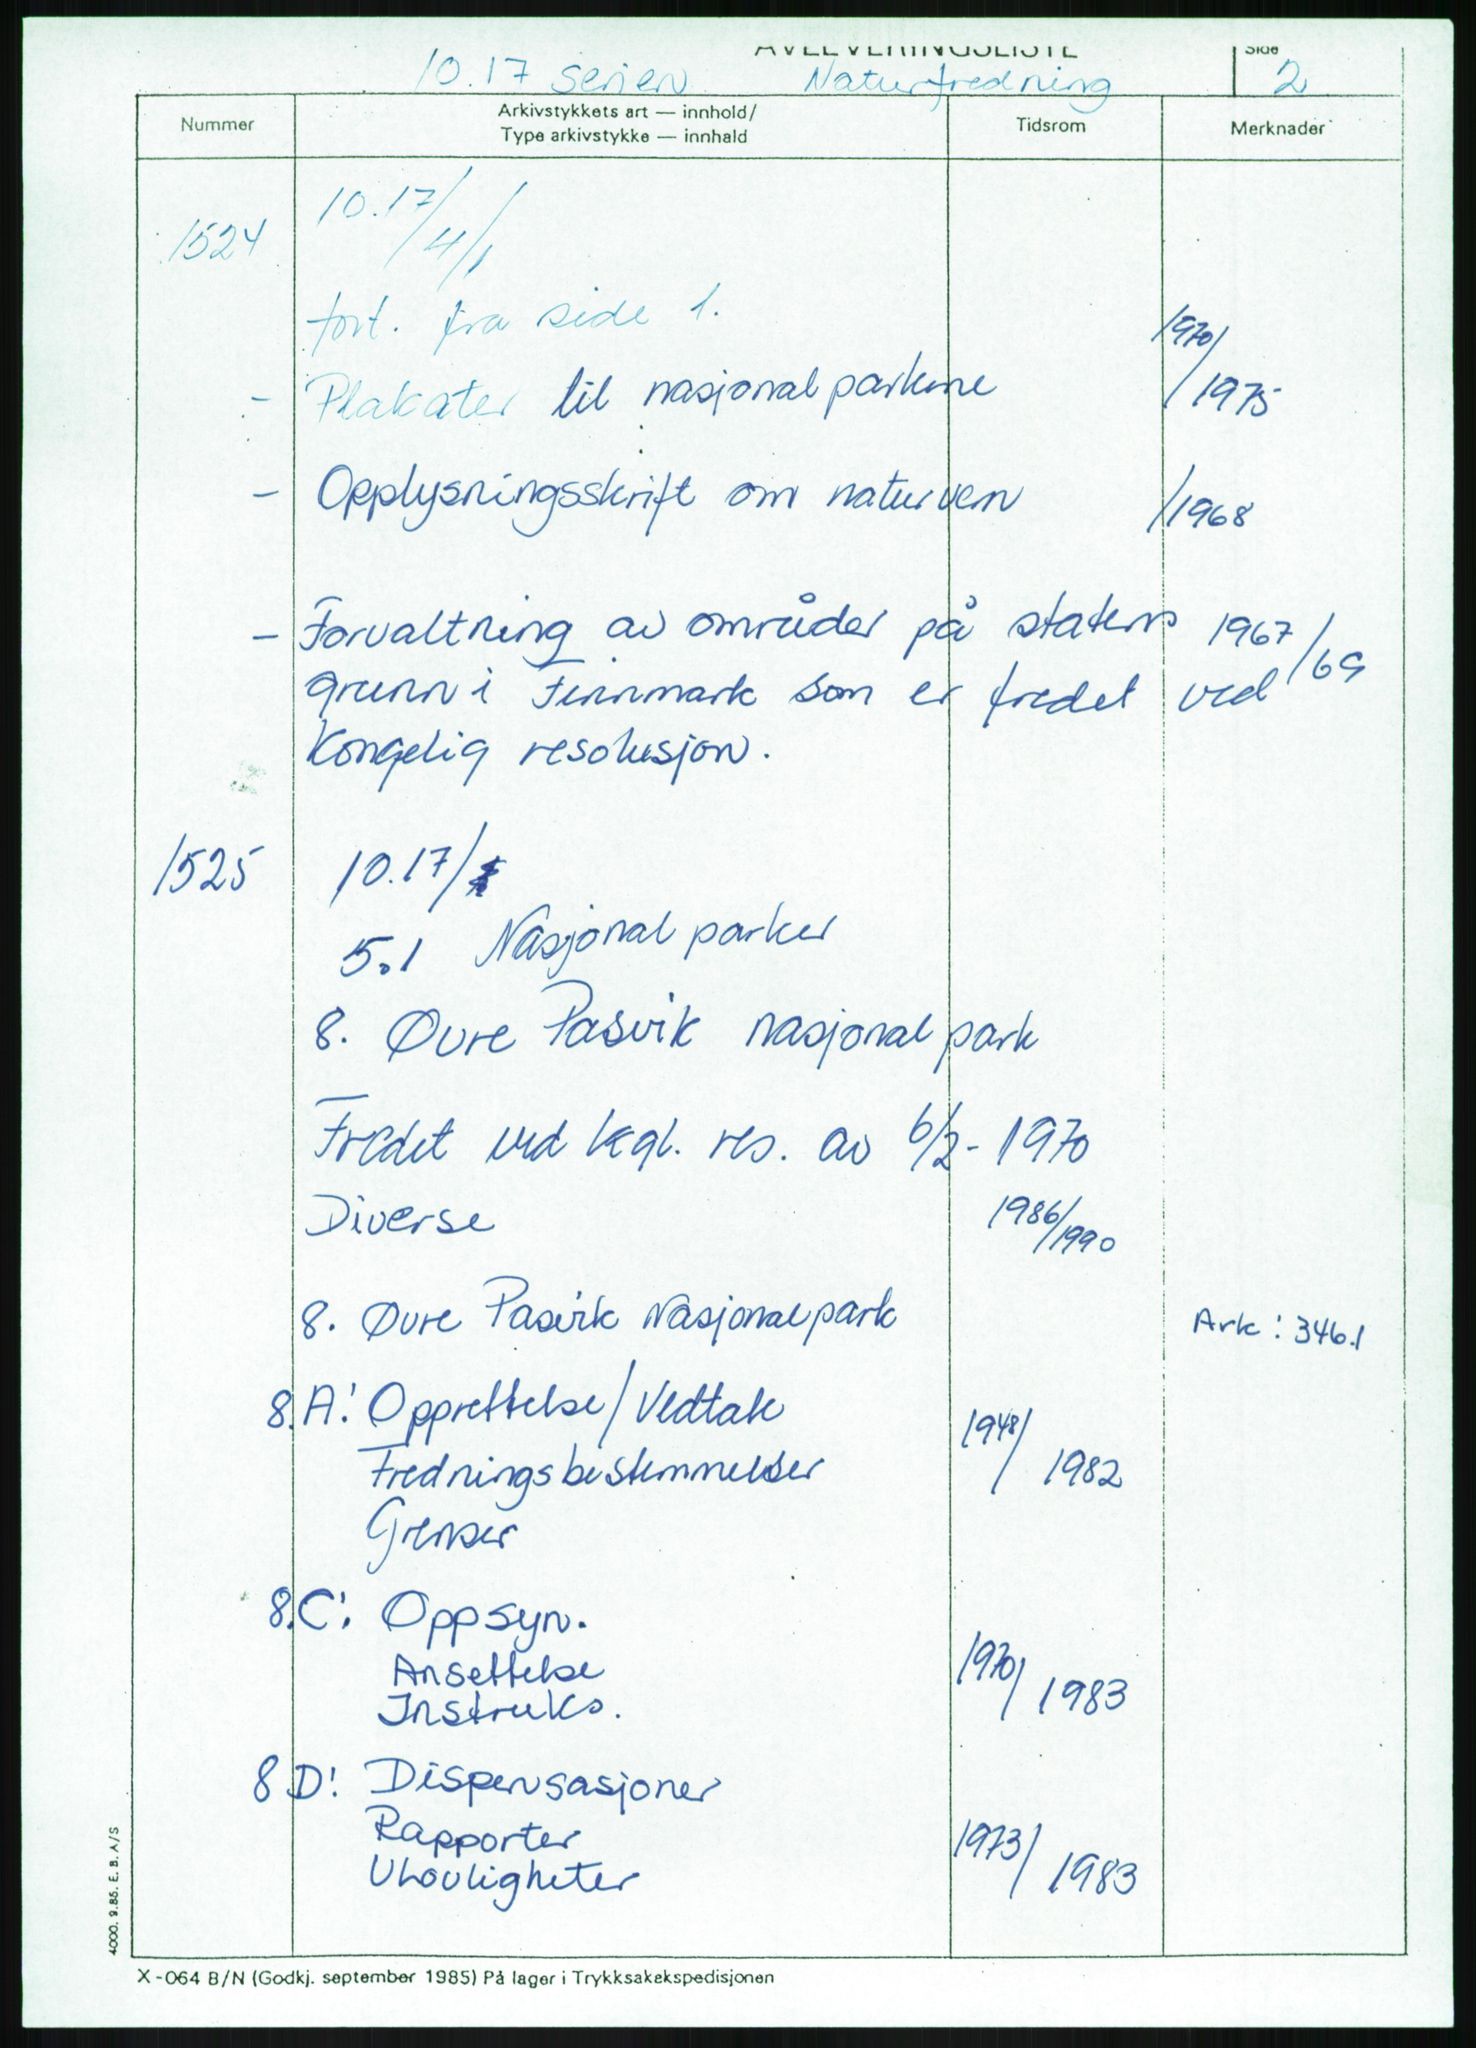 AVLEVERINGSLISTE
Side
10.17 serien Naturfredning 2
Nummer
Arkivstykkets art — innhold/
Type arkivstykke — innhald
Tidsrom
Merknader
1524 10.17/4/1
fort. fra side 1.
- Plakater til nasjonalparkene 1970/1975
- Opplysningsskrift om naturvern /1968
- Forvaltning av områder på statens 1967/69
grunn i Finnmark som er fredet ved
Kongelig resolusjon.
1525 10.17/
5.1 Nasjonalparker
8. Øvre Pasvik nasjonalpark
Fredet ved kgl. res. av 6/2-1970
Diverse 1986/1990
8. Øvre Pasvik Nasjonalpark Ark: 346.1
8.A: Opprettelse/Vedtak 1948/1982
Fredningsbestemmelser
Grenser
8.C: Oppsyn.
Ansettelse 1970/1983
Instruks.
8 D: Dispensasjoner
Rapporter 1973/1983
Ulovligheter
4000. 9.85. E. B. A/S
X-064 B/N (Godkj. september 1985) På lager i Trykksakekspedisjonen